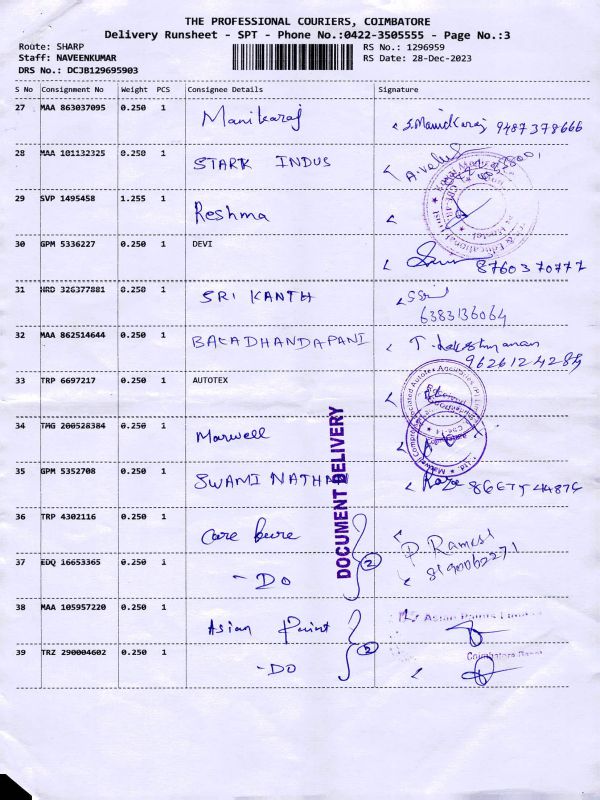 THE PROFESSIONAL COURIERS, COIMBATORE
Delivery Runsheet - SPT - Phone No.:0422-3505555 - Page No.:3
Route: SHARP
RS No.: 1296959
Staff: NAVEENKUMAR
RS Date: 28-Dec-2023
DRS No.: DCJB129695903
S No Consignment No Weight PCS Consignee Details Signature
27 MAA 863037095 0.250 1 Manikaraj 9487378666
28 MAA 101132325 0.250 1 STARK INDUS
29 SVP 1495458 1.255 1 Reshma
30 GPM 5336227 0.250 1 DEVI 8760370777
31 HRD 326377881 0.250 1 SRI KANTH
6383136064
32 MAA 862514644 0.250 1 BALADHANDAPANI T. Lakshmanan
9626124284
33 TRP 6697217 0.250 1 AUTOTEX
34 TMG 200528384 0.250 1 Marwell
35 GPM 5352708 0.250 1 SWAMI NATHAN
DOCUMENT DELIVERY
36 TRP 4302116 0.250 1 Care P. Ramesh
37 EDQ 16653365 0.250 1 - DO 2 8190062271
38 MAA 105957220 0.250 1 Asian Paint Asian Paints Limited
39 TRZ 290004602 0.250 1 - DO 2 Coimbatore